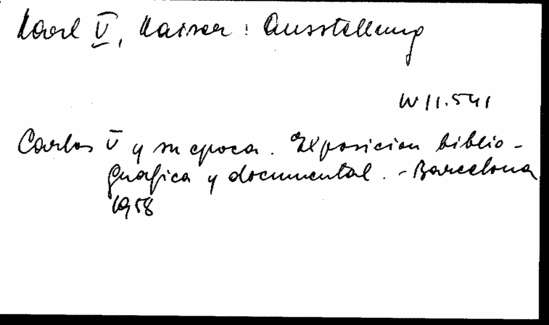 Karl V, Kaiser : Ausstellung
W 11.541
Carlos V y su epoca. Exposicion biblio-
grafica y documental. - Barcelona
1958